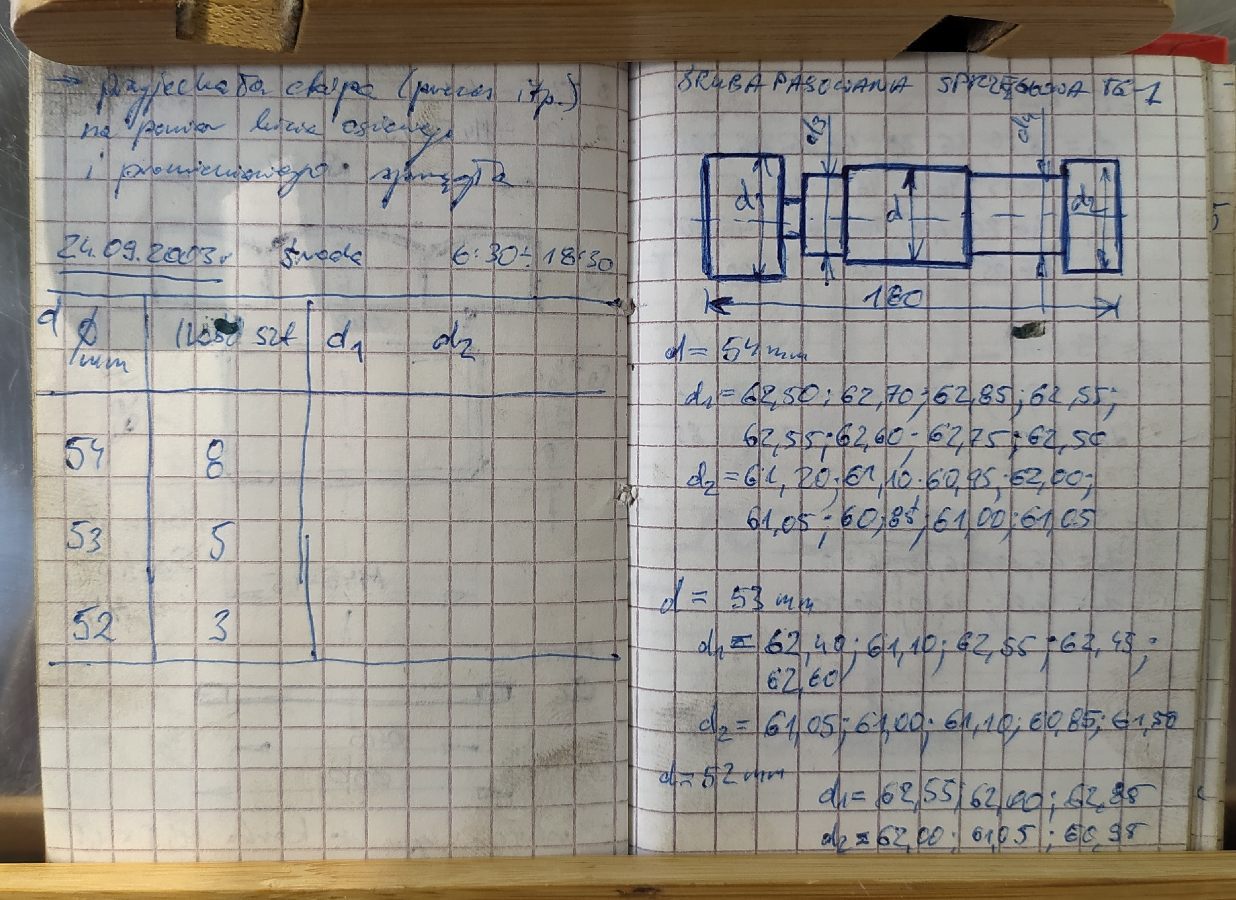 → przyjechała ekipa (
na pomiar bicia osiowego
i promieniowego sprzęgła
24.09.2003r środa 6:30÷18:30
d ϕ mm ilość szt d1 d2
54 8
53 5
52 3
ŚRUBA PASOWANA SPRZĘGŁOWA TG-1
d3 d4
d1 d d2
180
d = 54 mm
d1 = 62,50; 62,70; 62,85; 62,55;
62,55; 62,60; 62,75; 62,50
d2 = 61,20; 61,10; 60,95; 62,00;
61,05; 60,85; 61,00; 61,05
d = 53 mm
d1 = 62,40; 61,10; 62,55; 62,45;
62,60
d2 = 61,05; 61,00; 61,10; 60,85; 61,50
d = 52 mm
d1 = 62,55; 62,00; 62,85
d2 = 62,00; 61,05; 60,95